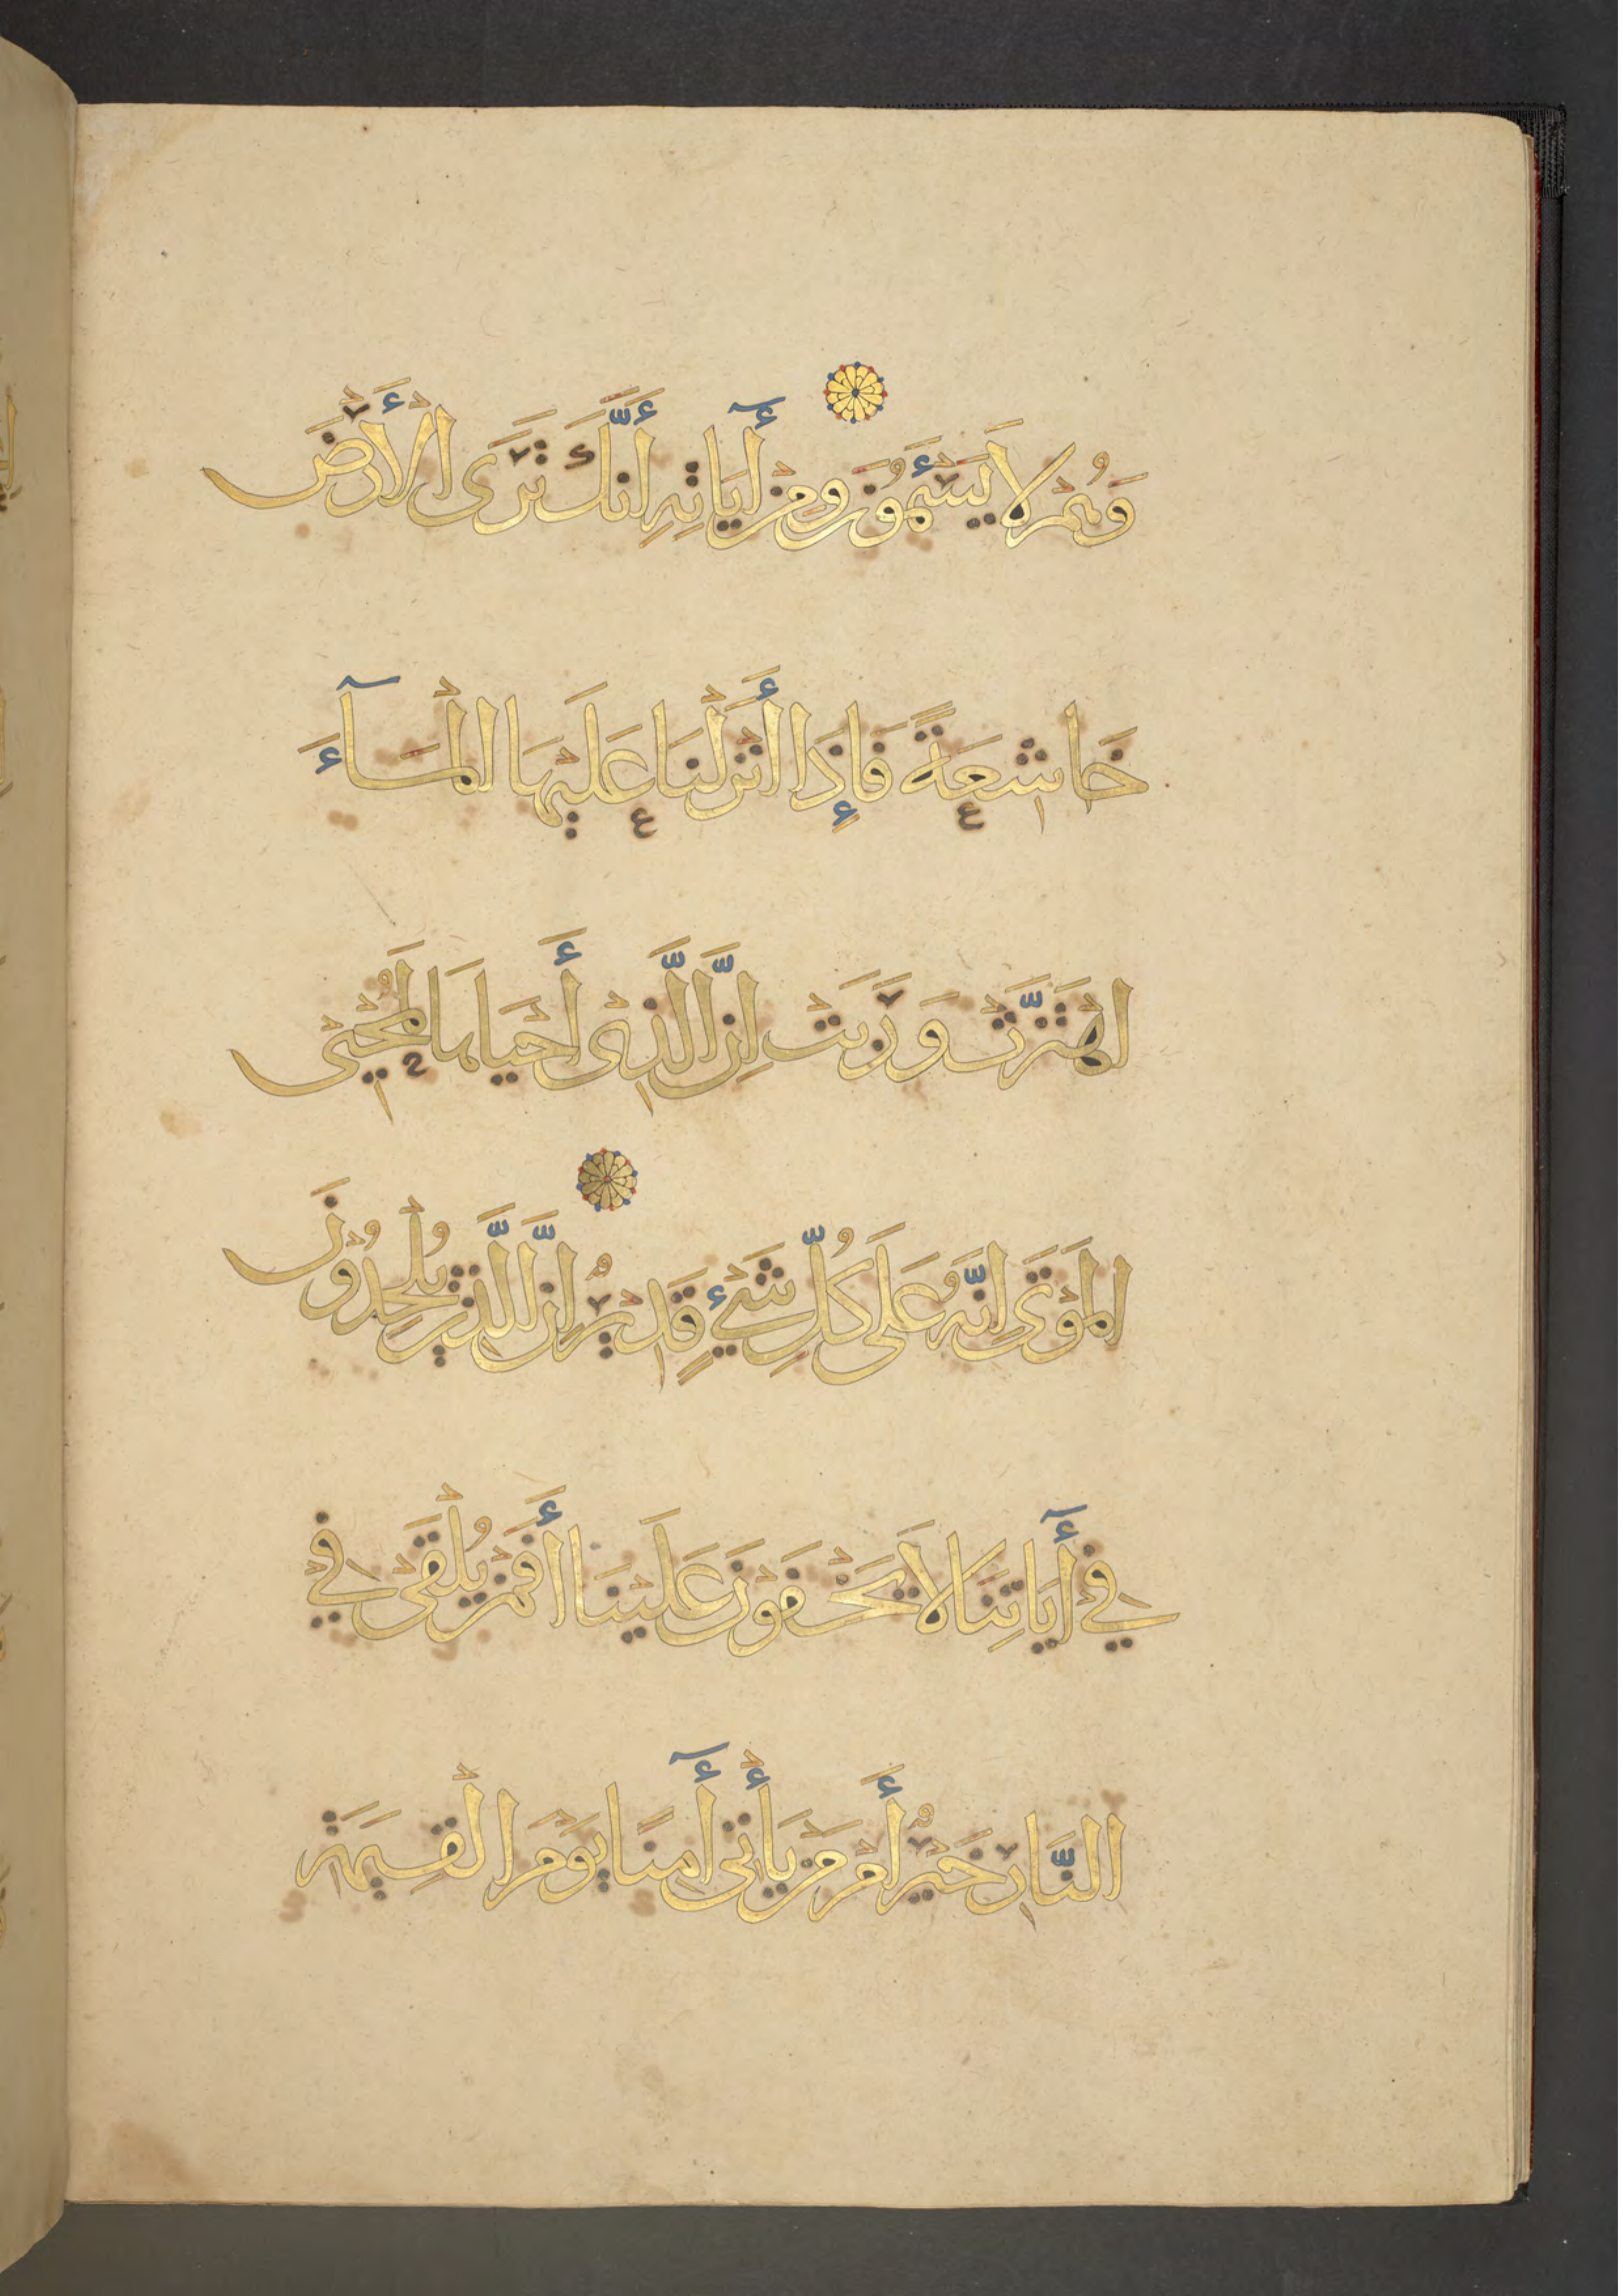 وَهُمْ لَا يَسْئَمُونَ وَمِنْ أٓيَاتِهِ أَنَّكَ تَرَى الْأَرْضَ
خَاشِعَةً فَإِذَا أَنْزَلْنَا عَلَيْهَا الْمَآءَ
اهْتَزَّتْ وَرَبَتْ اِنَّ الَّذِىْ أَحْيَاهَا لَمُحْيِى
الْمَوْتَى اِنَّهُ عَلَى كُلِّ شَيْءٍ قَدِيْرٌ اِنَّ الَّذِيْنَ يُلْحِدُوْنَ
فِيْ أٓيَاتِنَا لَا يَخْفَوْنَ عَلَيْنَا أَفَمَنْ يُلْقَىْ فِيْ
النَّارِ خَيْرٌ أَمْ مَنْ يَأْتِى أٓمِنًا يَوْمَ الْقِيمَةِ